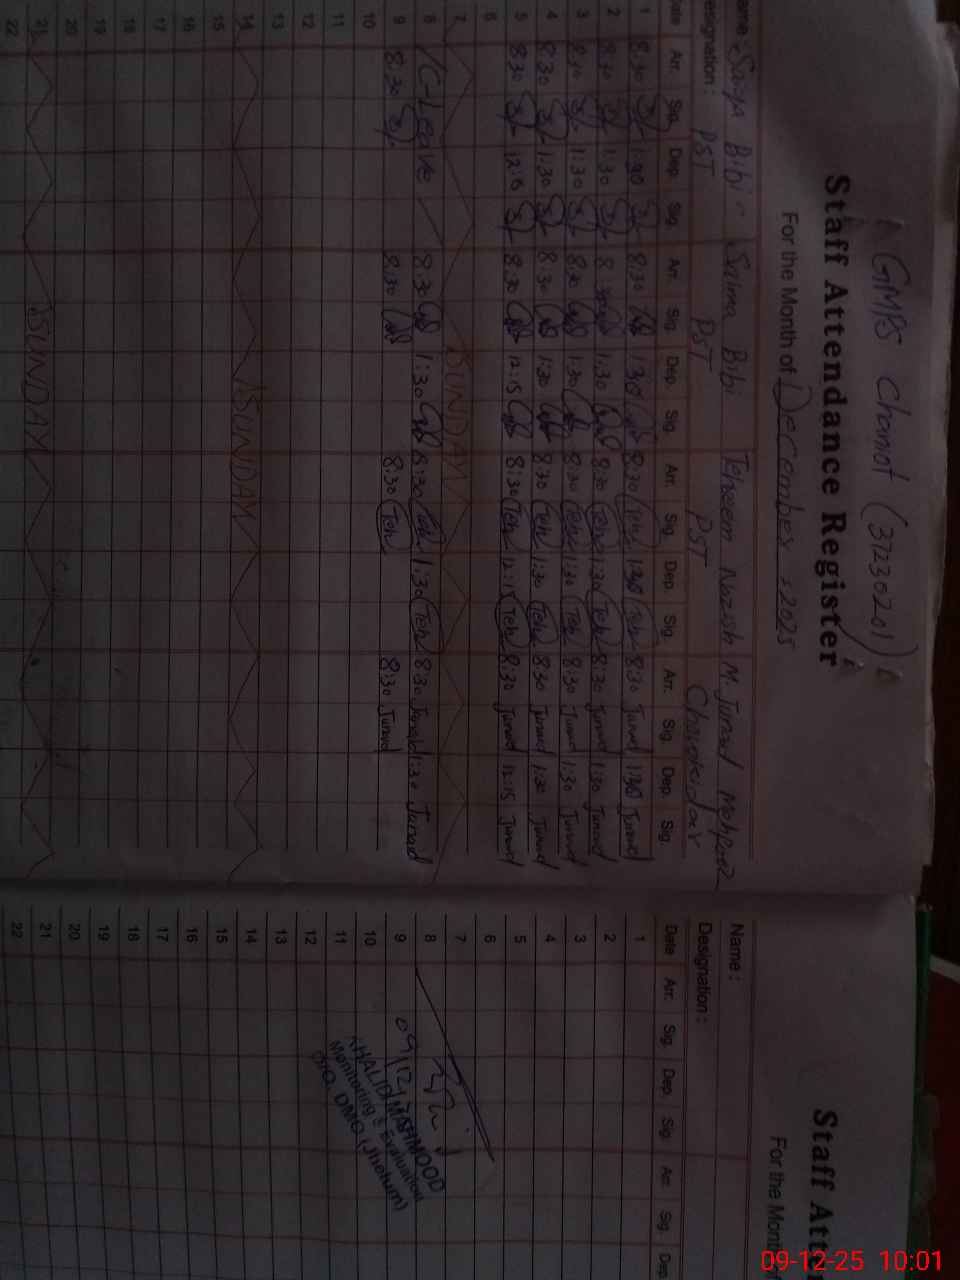 GMPS Chamot (37230201)
Staff Attendance Register
For the Month of December, 2025
Name: Saiqa Bibi Saima Bibi Tehreem Nazish M. Junaid
Designation: PST PST PST Chowkidar
Date Arr. Sig. Dep. Sig. Arr. Sig. Dep. Sig. Arr. Sig. Dep. Sig. Arr. Sig. Dep. Sig.
1 8:30 1:30 8:30 1:30 8:30 Teh 1:30 Teh 8:30 Junaid 1:30 Junaid
2 8:30 1:30 8:30 1:30 8:30 Teh 1:30 Teh 8:30 Junaid 1:30 Junaid
3 8:30 1:30 8:30 1:30 8:30 Teh 1:30 Teh 8:30 Junaid 1:30 Junaid
4 8:30 1:30 8:30 1:30 8:30 Teh 1:30 Teh 8:30 Junaid 1:30 Junaid
5 8:30 12:15 8:30 12:15 8:30 Teh 12:15 Teh 8:30 Junaid 12:15 Junaid
6
7 SUNDAY
8 C-Leave 8:30 1:30 8:30 Teh 1:30 Teh 8:30 Junaid 1:30 Junaid
9 8:30 8:30 8:30 Teh 8:30 Junaid
10
11
12
13
14 SUNDAY
15
16
17
18
19
20
21 SUNDAY
22
Staff Att
For the Mont
Name :
Designation :
Date Arr. Sig. Dep. Sig. Arr. Sig. Dep.
1
2
3
4
5
6
7
8
9 09/12/
10
11
12
13
14
15
16
17
18
19
20
21
22
KHALID MAHMOOD
Monitoring & Evaluation
O/O. DMO (Jhelum)
09-12-25 10:01